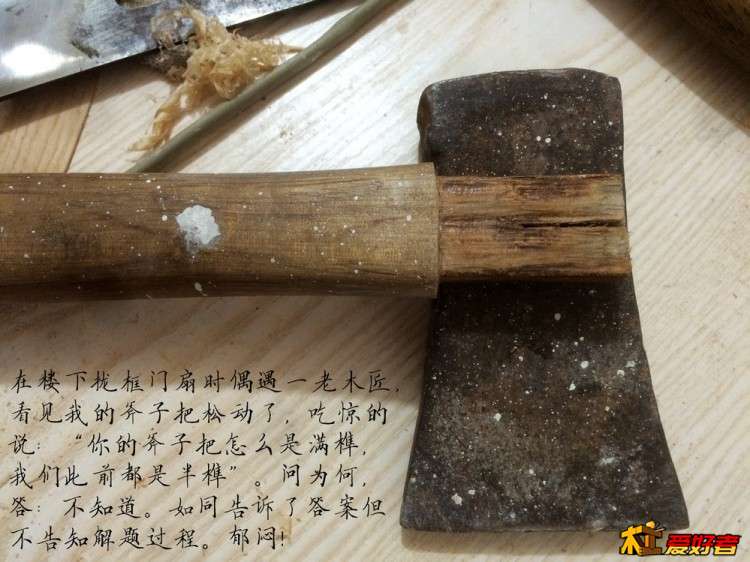 在楼下拢框门扇时偶遇一老木匠，
看见我的斧子把松动了，吃惊的
说：“你的斧子把怎么是满榫，
我们此前都是半榫”。问为何，
答：不知道。如同告诉了答案但
不告知解题过程。郁闷！
木工爱好者